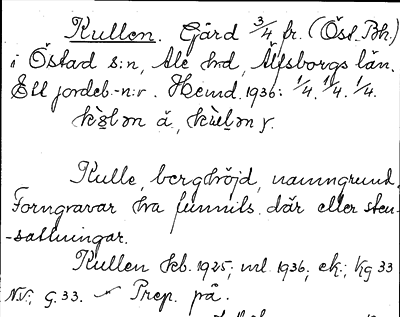 Kullen. Gård 3/4 fr. (Öst. Bk.)
i Östad s:n, Ale hd, Älfsborgs län.
Ett jordeb.-n:r. Hemd. 1936: 1/4. 1/4. 1/4.
ä,
Kulle, berghöjd, namngrund.
Forngravar ha funnits där eller sten-
-sättningar.
Kullen kb. 1925; ml. 1936; ek.; Kg 33
N.V.; G. 33. Prep. på.